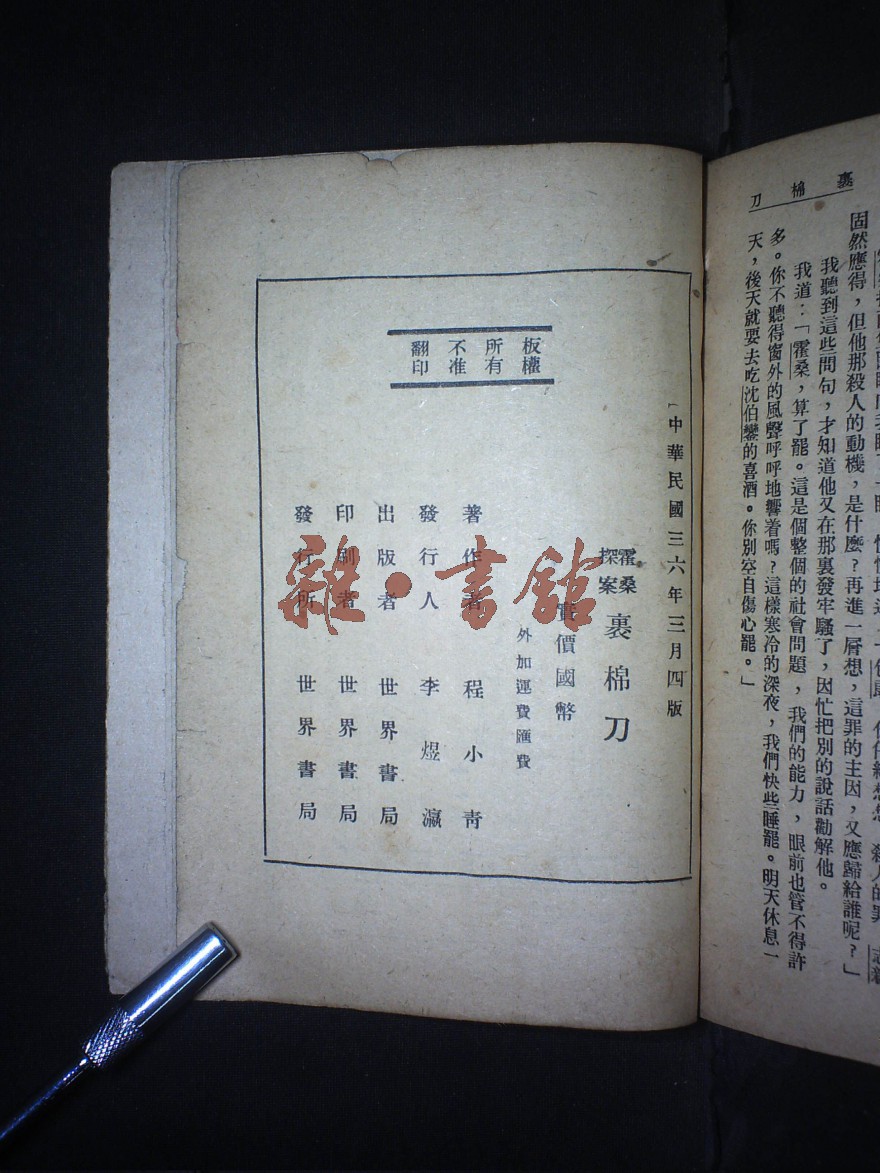 裹棉刀
固然應得，但他那殺人的動機，是什麼？再進一層想，這罪的主因，又應歸給誰呢？」
我聽到這些問句，才知道他又在那裏發牢騷了，因忙把別的說話勸解他。
我道：「霍桑，算了罷。這是個整個的社會問題，我們的能力，眼前也管不得許
多。你不聽得窗外的風聲呼呼地響着嗎？這樣寒冷的深夜，我們快些睡罷。明天休息一
天，後天就要去吃沈伯鑾的喜酒。你別空自傷心罷。」
中華民國三六年三月四版
霍桑探案
裹棉刀
實價國幣
外加運費匯費
著作者 程小青
發行人 李煜瀛
出版者 世界書局
印刷者 世界書局
發行所 世界書局
板權所有不准翻印
雜·書館